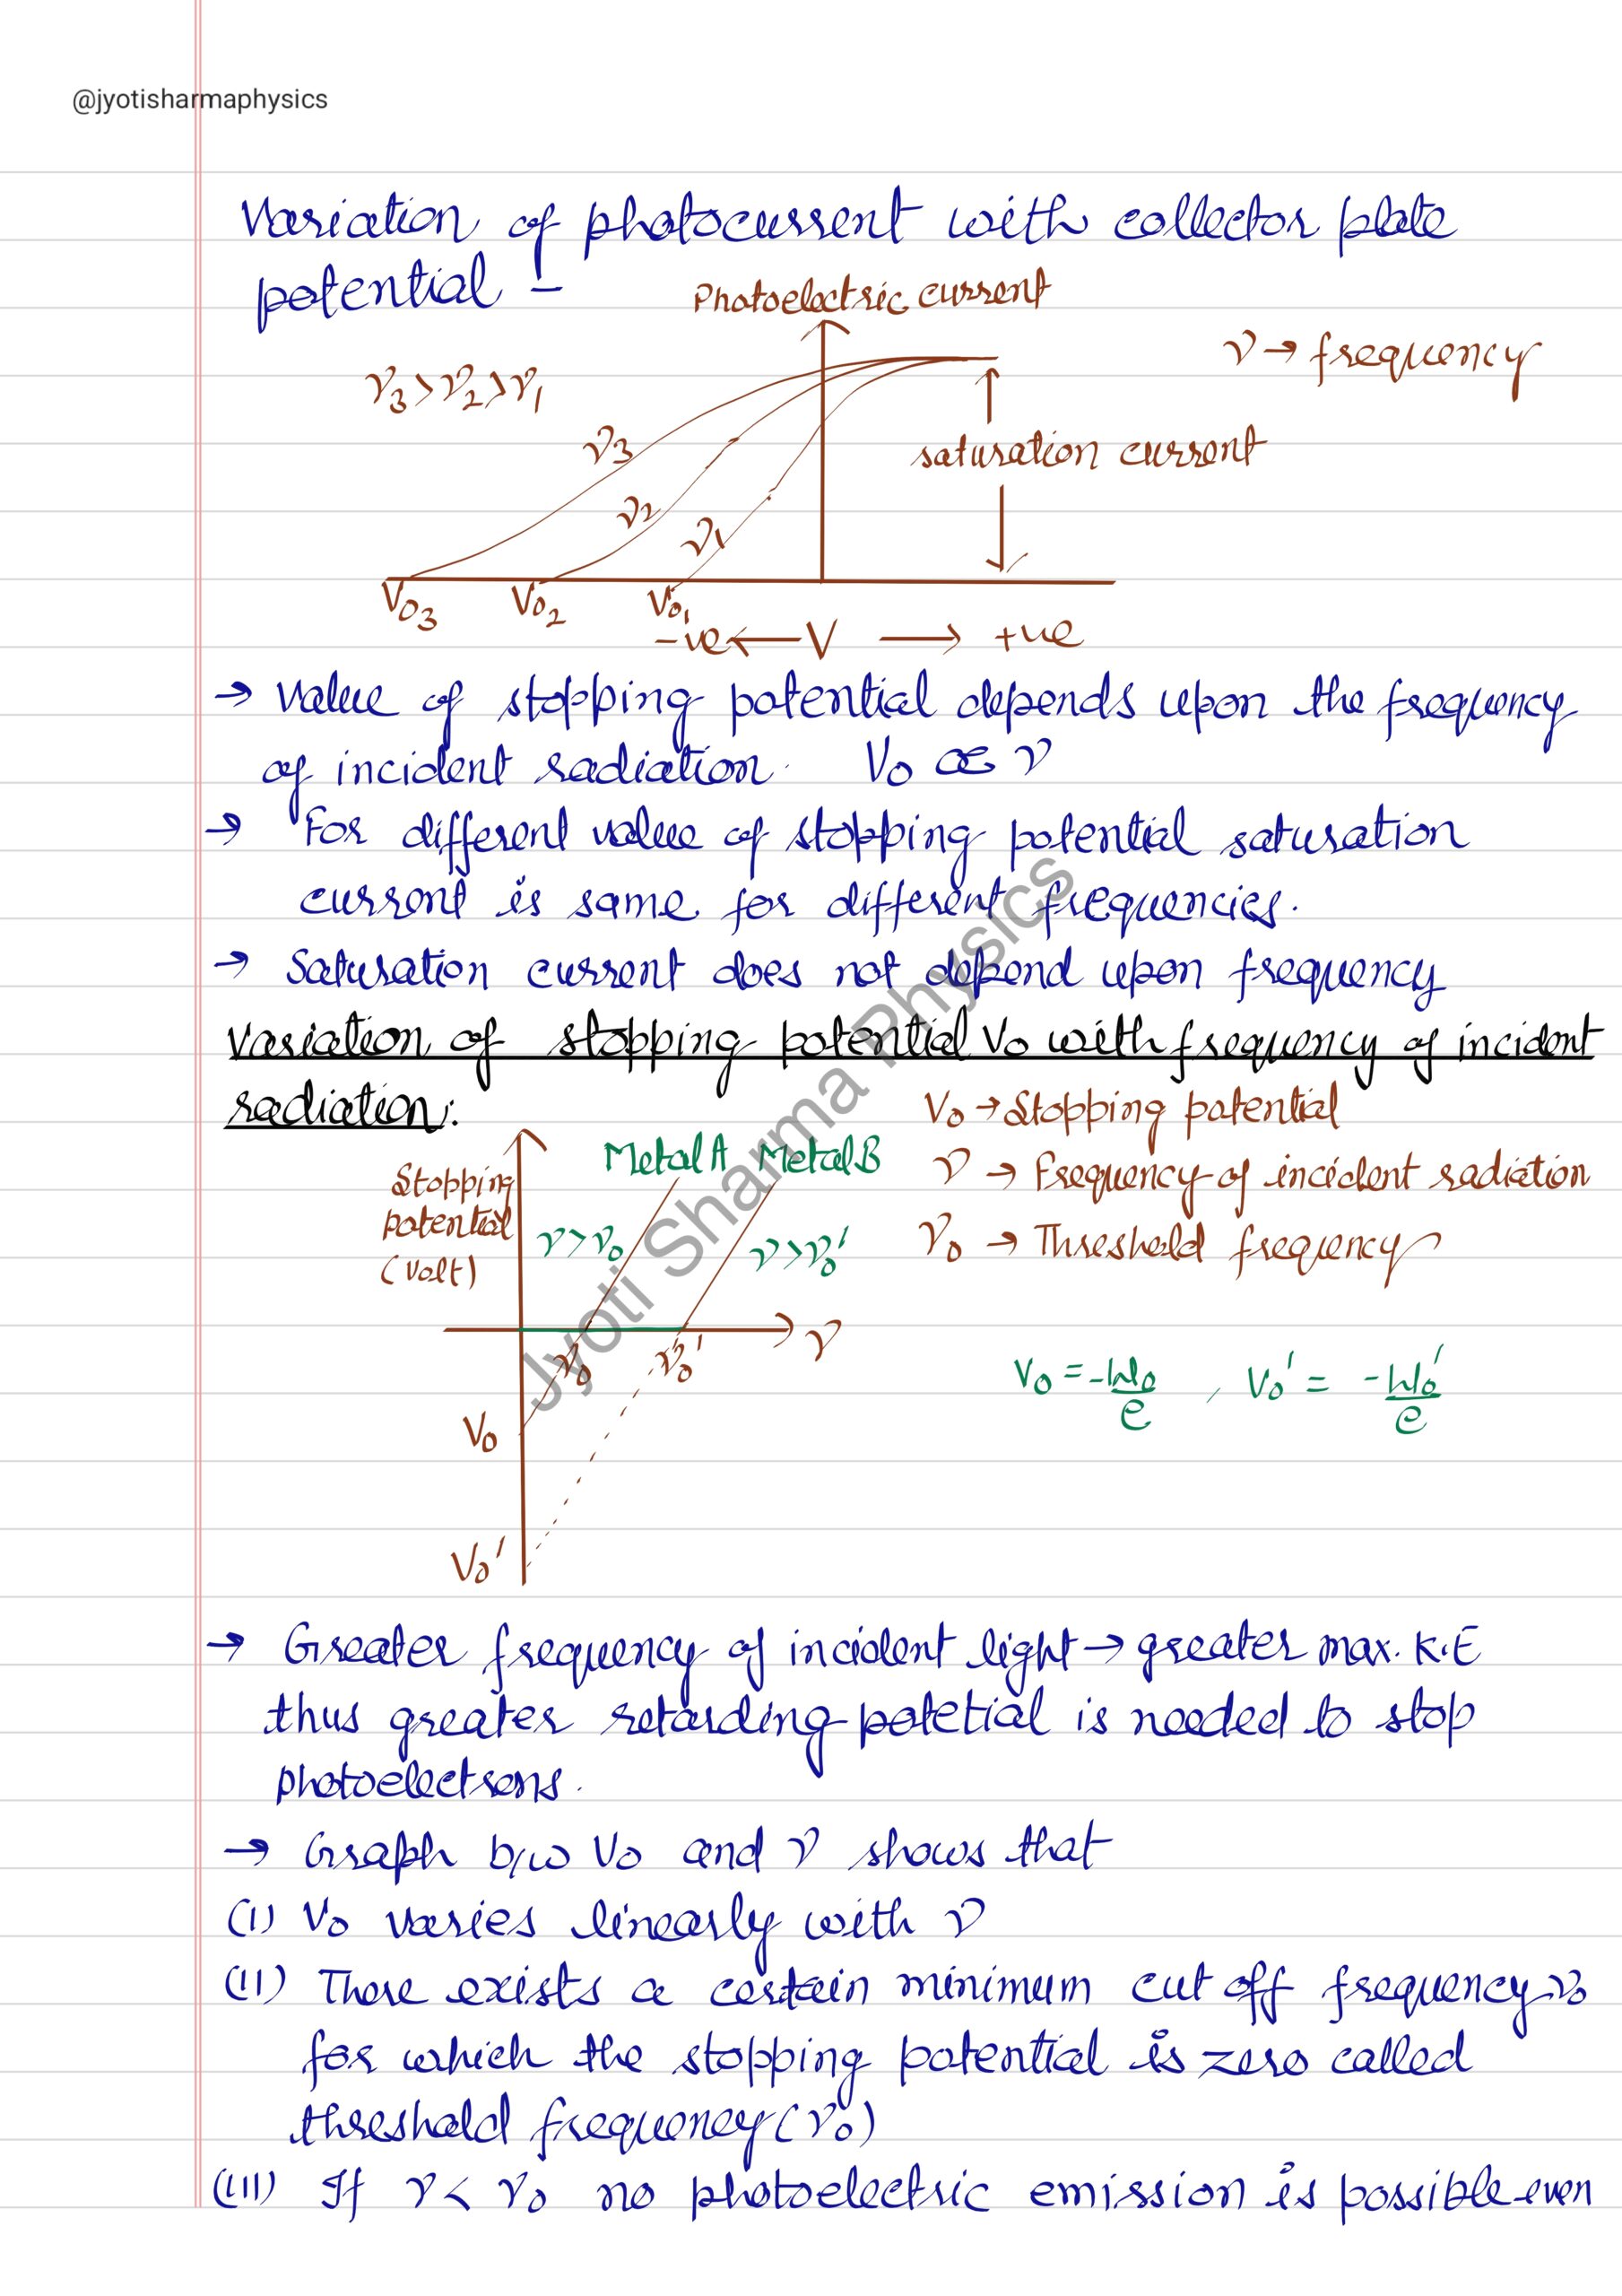 @jyotisharmaphysics
Variation of photocurrent with collector plate
potential -
Photoelectric current
ν → frequency
ν3 > ν2 > ν1
ν3
saturation current
ν2
ν1
V03 V02 V01
-ve ← V → +ve
→ Value of stopping potential depends upon the frequency
of incident radiation. V0 ∝ ν
→ For different value of stopping potential saturation
current is same for different frequencies.
→ Saturation current does not depend upon frequency
Variation of stopping potential V0 with frequency of incident
radiation:
V0 → Stopping potential
Metal A Metal B
Stopping
potential
(Volt)
ν → Frequency of incident radiation
ν > ν0
ν > ν0'
ν0 → Threshold frequency
ν
ν0 ν0'
V0 = -W0/e , V0' = -W0'/e
V0
V0'
→ Greater frequency of incident light → greater max. K.E
thus greater retarding potetial is needed to stop
photoelectrons.
→ Graph b/w V0 and ν shows that
(I) V0 varies linearly with ν
(II) There exists a certain minimum cut off frequency ν0
for which the stopping potential is zero called
threshold frequency (ν0)
(III) If ν < ν0 no photoelectric emission is possible even
Jyoti Sharma Physics